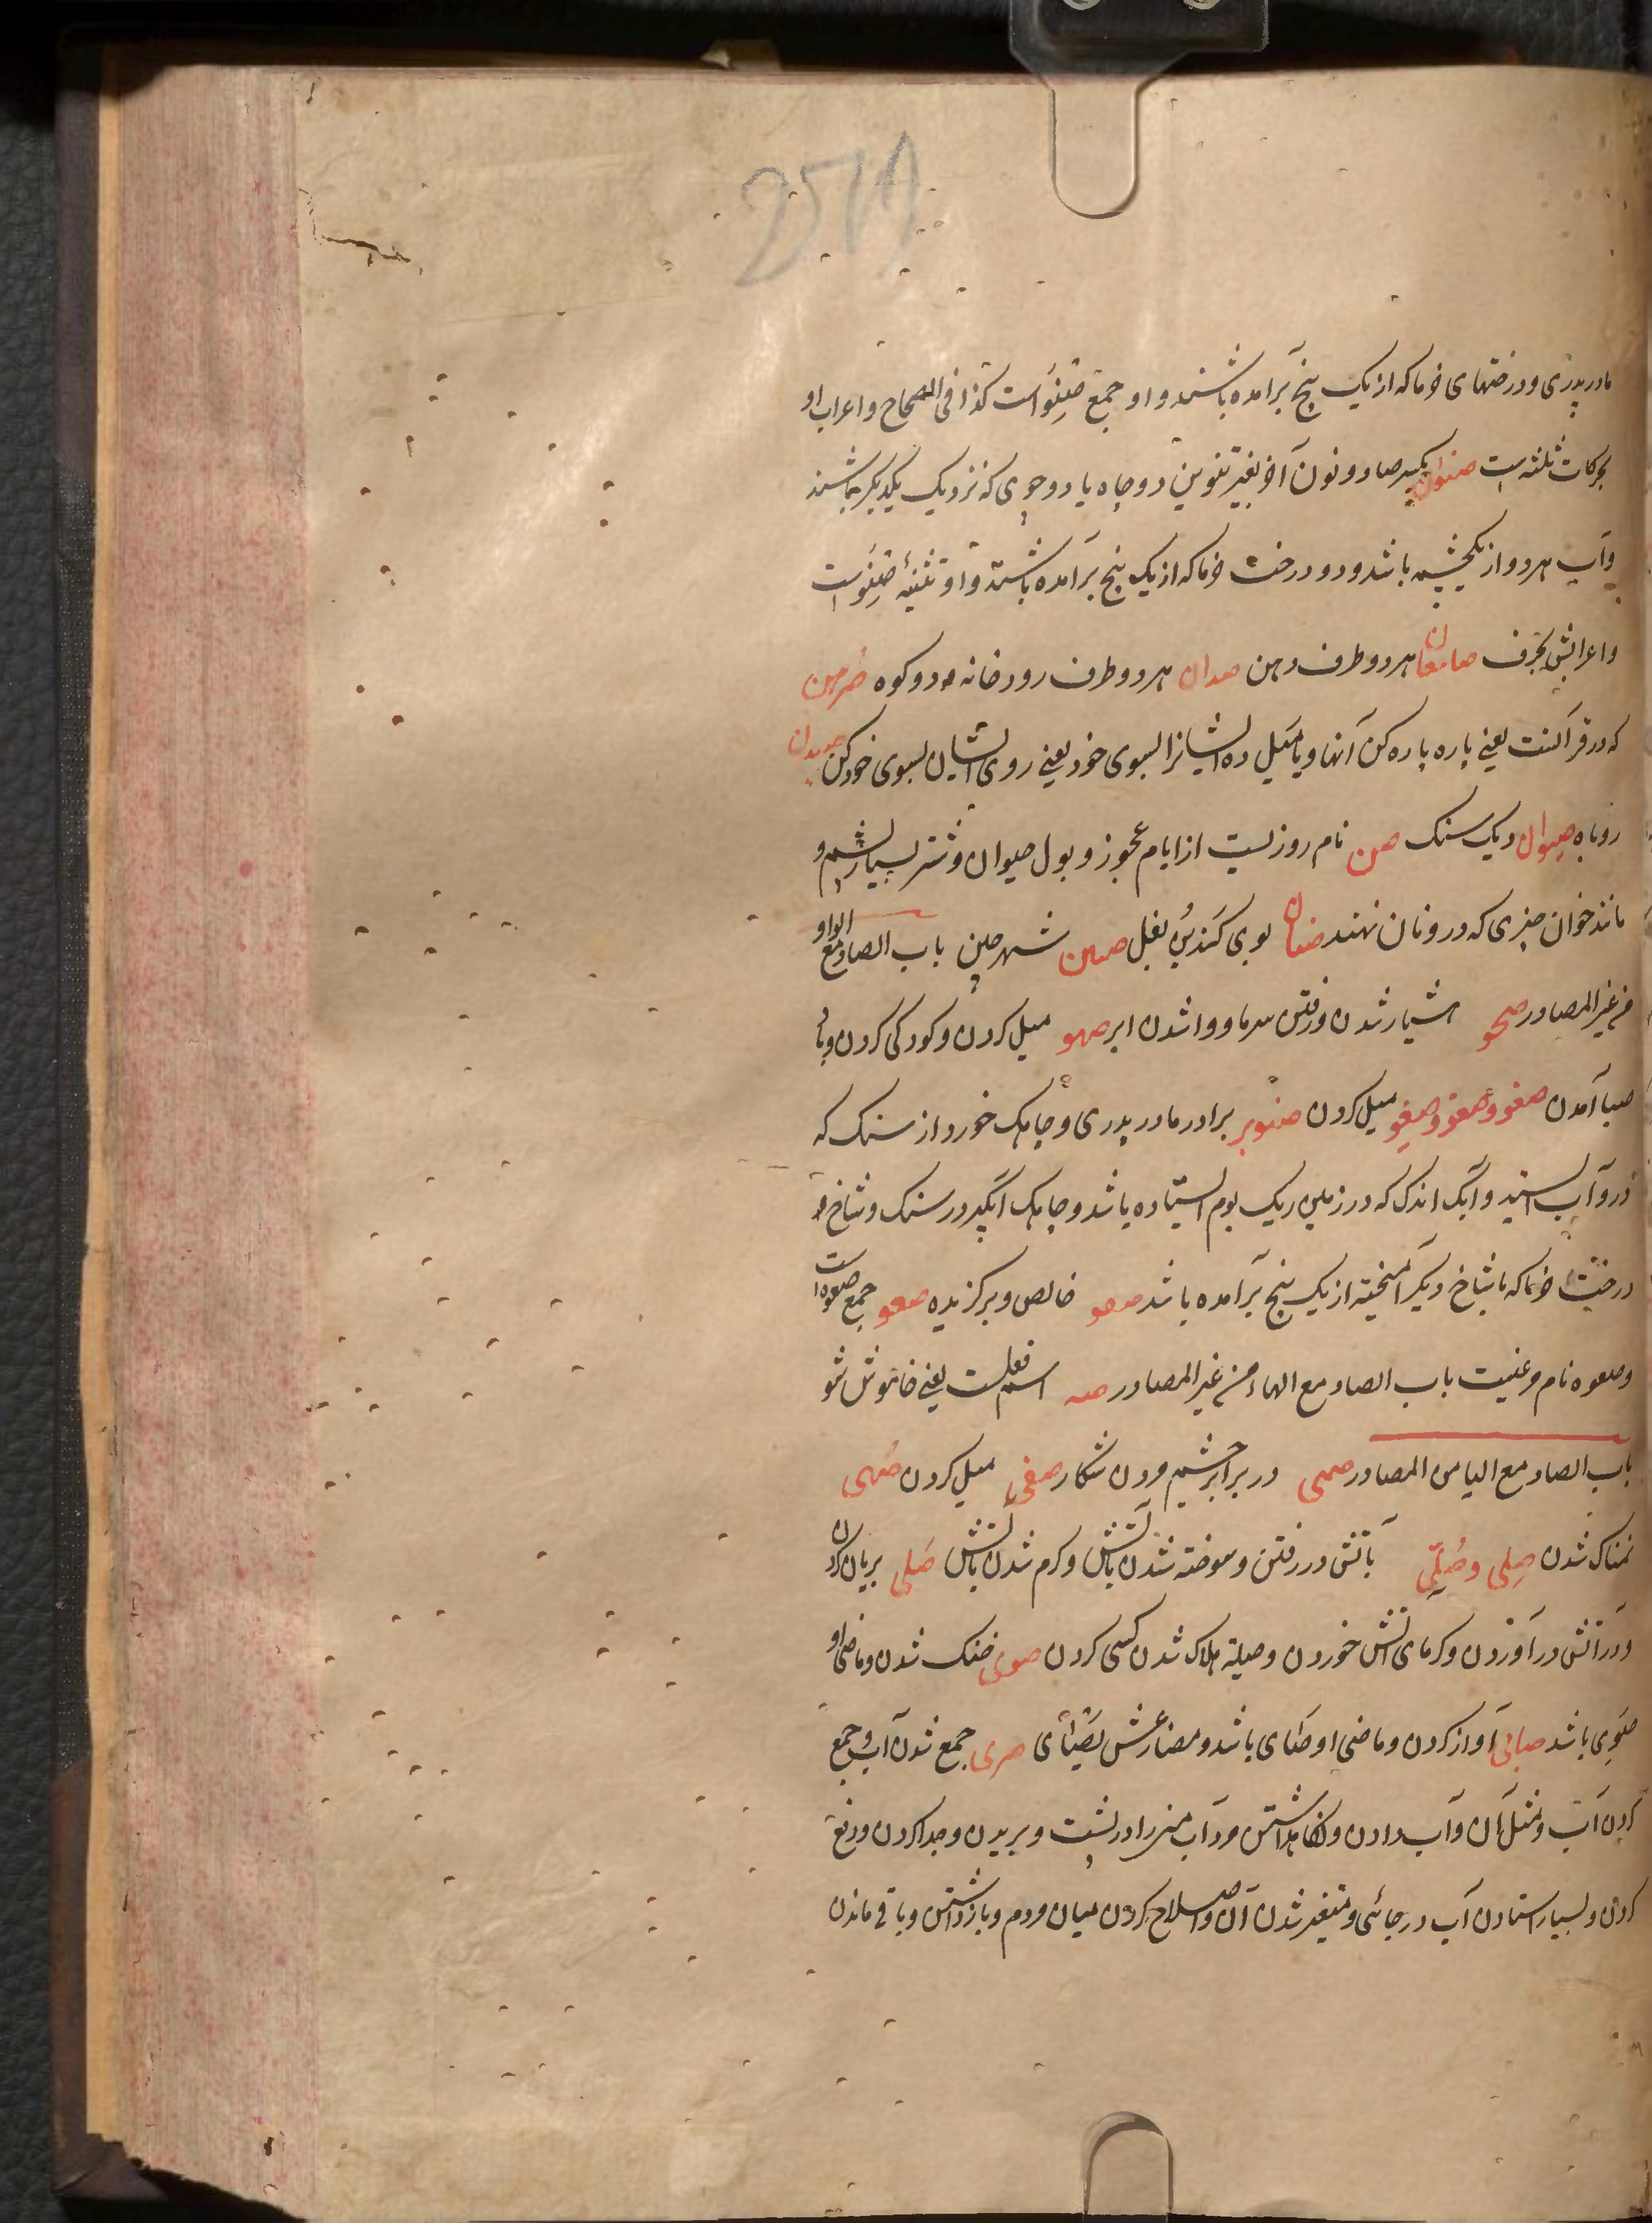 مادر پدری و درختهای خرما که از یک بیخ برآمده باشند و او جمع صِنْوَاست کذا فی الصحاح و اعراب او
بحرکات ثلثه است صنوان بکسر صاد و نون آخر بغیر تنوین دو چاه یا دو جوی که نزدیک یکدیگر باشند
و آب هر دو از یکچشمه باشد و دو درخت خرما که از یک بیخ برآمده باشند و او تثنیهٔ صِنْوَست
و اعرابش بحرف صامغان هر دو طرف دهن صدان هر دو طرف رودخانه و دو کوه صُرهن
که در قرآنست یعنی پاره پاره کن آنها و یا میل ده ایشانرا بسوی خود یعنی روی ایشان بسوی خود کن صیدن
روباه صیوان دیک سنک صن نام روزیست از ایام عجوز و بول حیوان و شتر بسیار پشم و
مانند خوان چیزی که درو نان نهند صنان بوی کندیدن بغل صین شهر چین باب الصاد مع الواو
من غیر المصادر صحو هشیار شدن و رفتن سرما و وا شدن ابر صهو میل کردن و کودکی کردن و باد
صبا آمدن صغو و صغو و صغو میل کردن صنو برادر مادر پدری و چاهک خورد از سنک که
درو آب استد و آبک اندک که در زمین ریک بوم استاده باشد و چاهک آبگیر در سنک و شاخ و
درخت خرما که با شاخ دیکر آمیخته از یک بیخ برآمده باشد صفو خالص و برکزیده صعو جمع صعوه است
و صعوه نام مرغیست باب الصاد مع الهاء من غیر المصادر صه اسم فعلست یعنی خاموش شو
باب الصاد مع الیا من المصادر صمی در برابر چشم مردن شکار صغی میل کردن صُهی
نمناک شدن صِلی و صُلِّی بآتش در رفتن و سوخته شدن بآتش و کرم شدن بآتش صَلی بریان کردن
و در آتش در آوردن و کرمای آتش خوردن و حیلهٔ هلاک شدن کسی کردن صوی خشک شدن و ماضی او
صَوِی باشد صیایی آواز کردن و ماضی او صَئای باشد و مضارعش یَصْئای صری جمع شدن آب و جمع
کردن آب و مثل آن و آب دادن و نکاهداشتن مرد آب منی را در پشت و بریدن و جدا کردن و رفع
کردن و بسیار استادن آب در جائی و متغیر شدن آن و اصلاح کردن میان مردم و بازداشتن و باقی ماندن